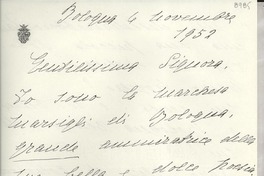 Bologna 4 novembre
1952
Gentilissima Signora,
Io sono la marchesa
Marsigli di Bologna,
grande ammiratrice della
sua bella e dolce poesia